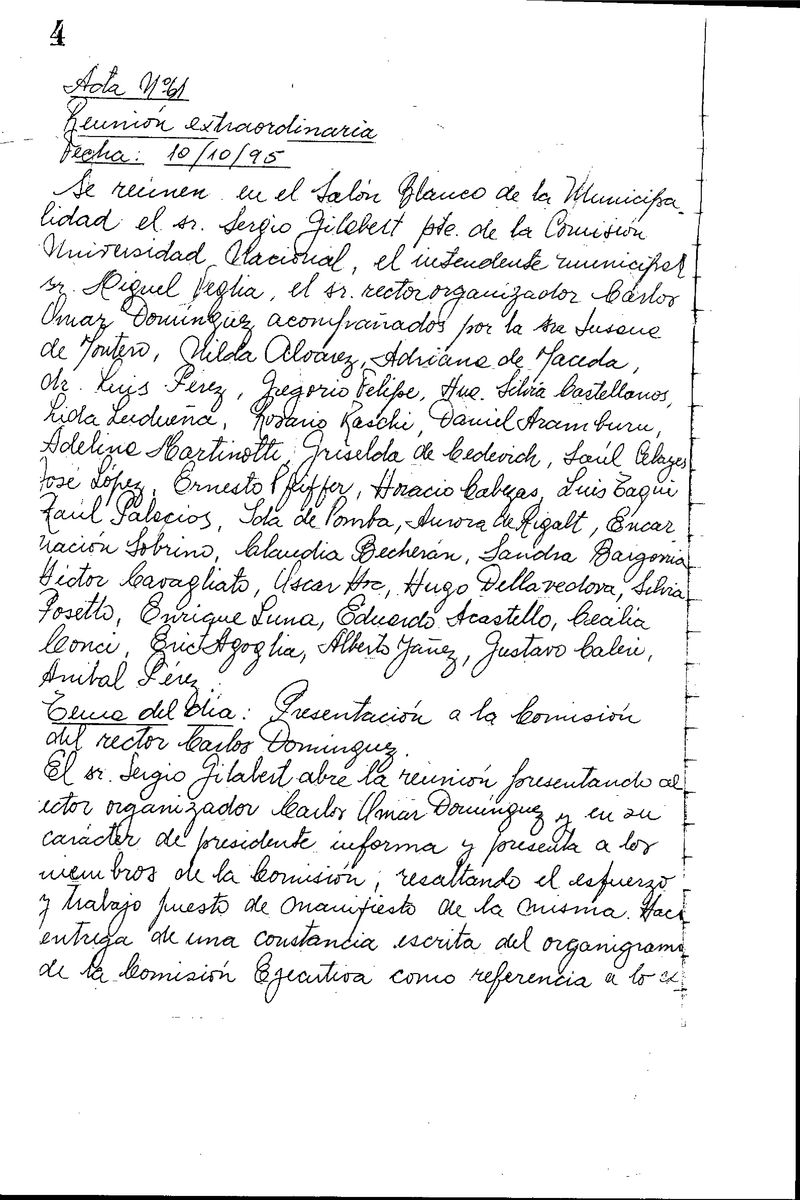 4
Acta Nº 61
Reunión extraordinaria
Fecha: 10/10/95
Se reúnen en el Salón Blanco de la Municipa-
lidad el sr. Sergio Gilabert pte. de la Comisión
Universidad Nacional, el intendente municipal
sr. Miguel Veglia, el sr. rector organizador Carlos
Omar Domínguez acompañados por la sra Susana
de Montero, Nilda Alvarez, Adriana de Maceda,
dr. Luis Pérez, Gregorio Felipe, Hna. Silvia Castellanos,
Lida Ludueña, Rosario Raschi, Daniel Aramburu,
Adelina Martinotti, Griselda de Cedevich, Saúl
José López, Ernesto Pfeiffer, Horacio Cabezas, Luis Taqui
Raúl Palacios, Ida de Pomba, Aurora de Rigalt, Encar
nación Sobrino, Claudia Becherán, Sandra Bargonia
Héctor Cavagliato, Oscar Hrc, Hugo Dellavedova, Silvia
Posetto, Enrique Luna, Eduardo Acastello, Cecilia
Conci, Eric Agoglia, Alberto Yañez, Gustavo Caleri,
Anibal Pérez.
Tema del día: Presentación a la Comisión
del rector Carlos Domínguez.
El sr. Sergio Gilabert abre la reunión presentando al
ector organizador Carlos Omar Domínguez y en su
carácter de presidente informa y presenta a los
miembros de la Comisión, resaltando el esfuerzo
y trabajo puesto de manifiesto de la misma. Hace
entrega de una constancia escrita del organigrama
de la Comisión Ejecutiva como referencia a lo ex-